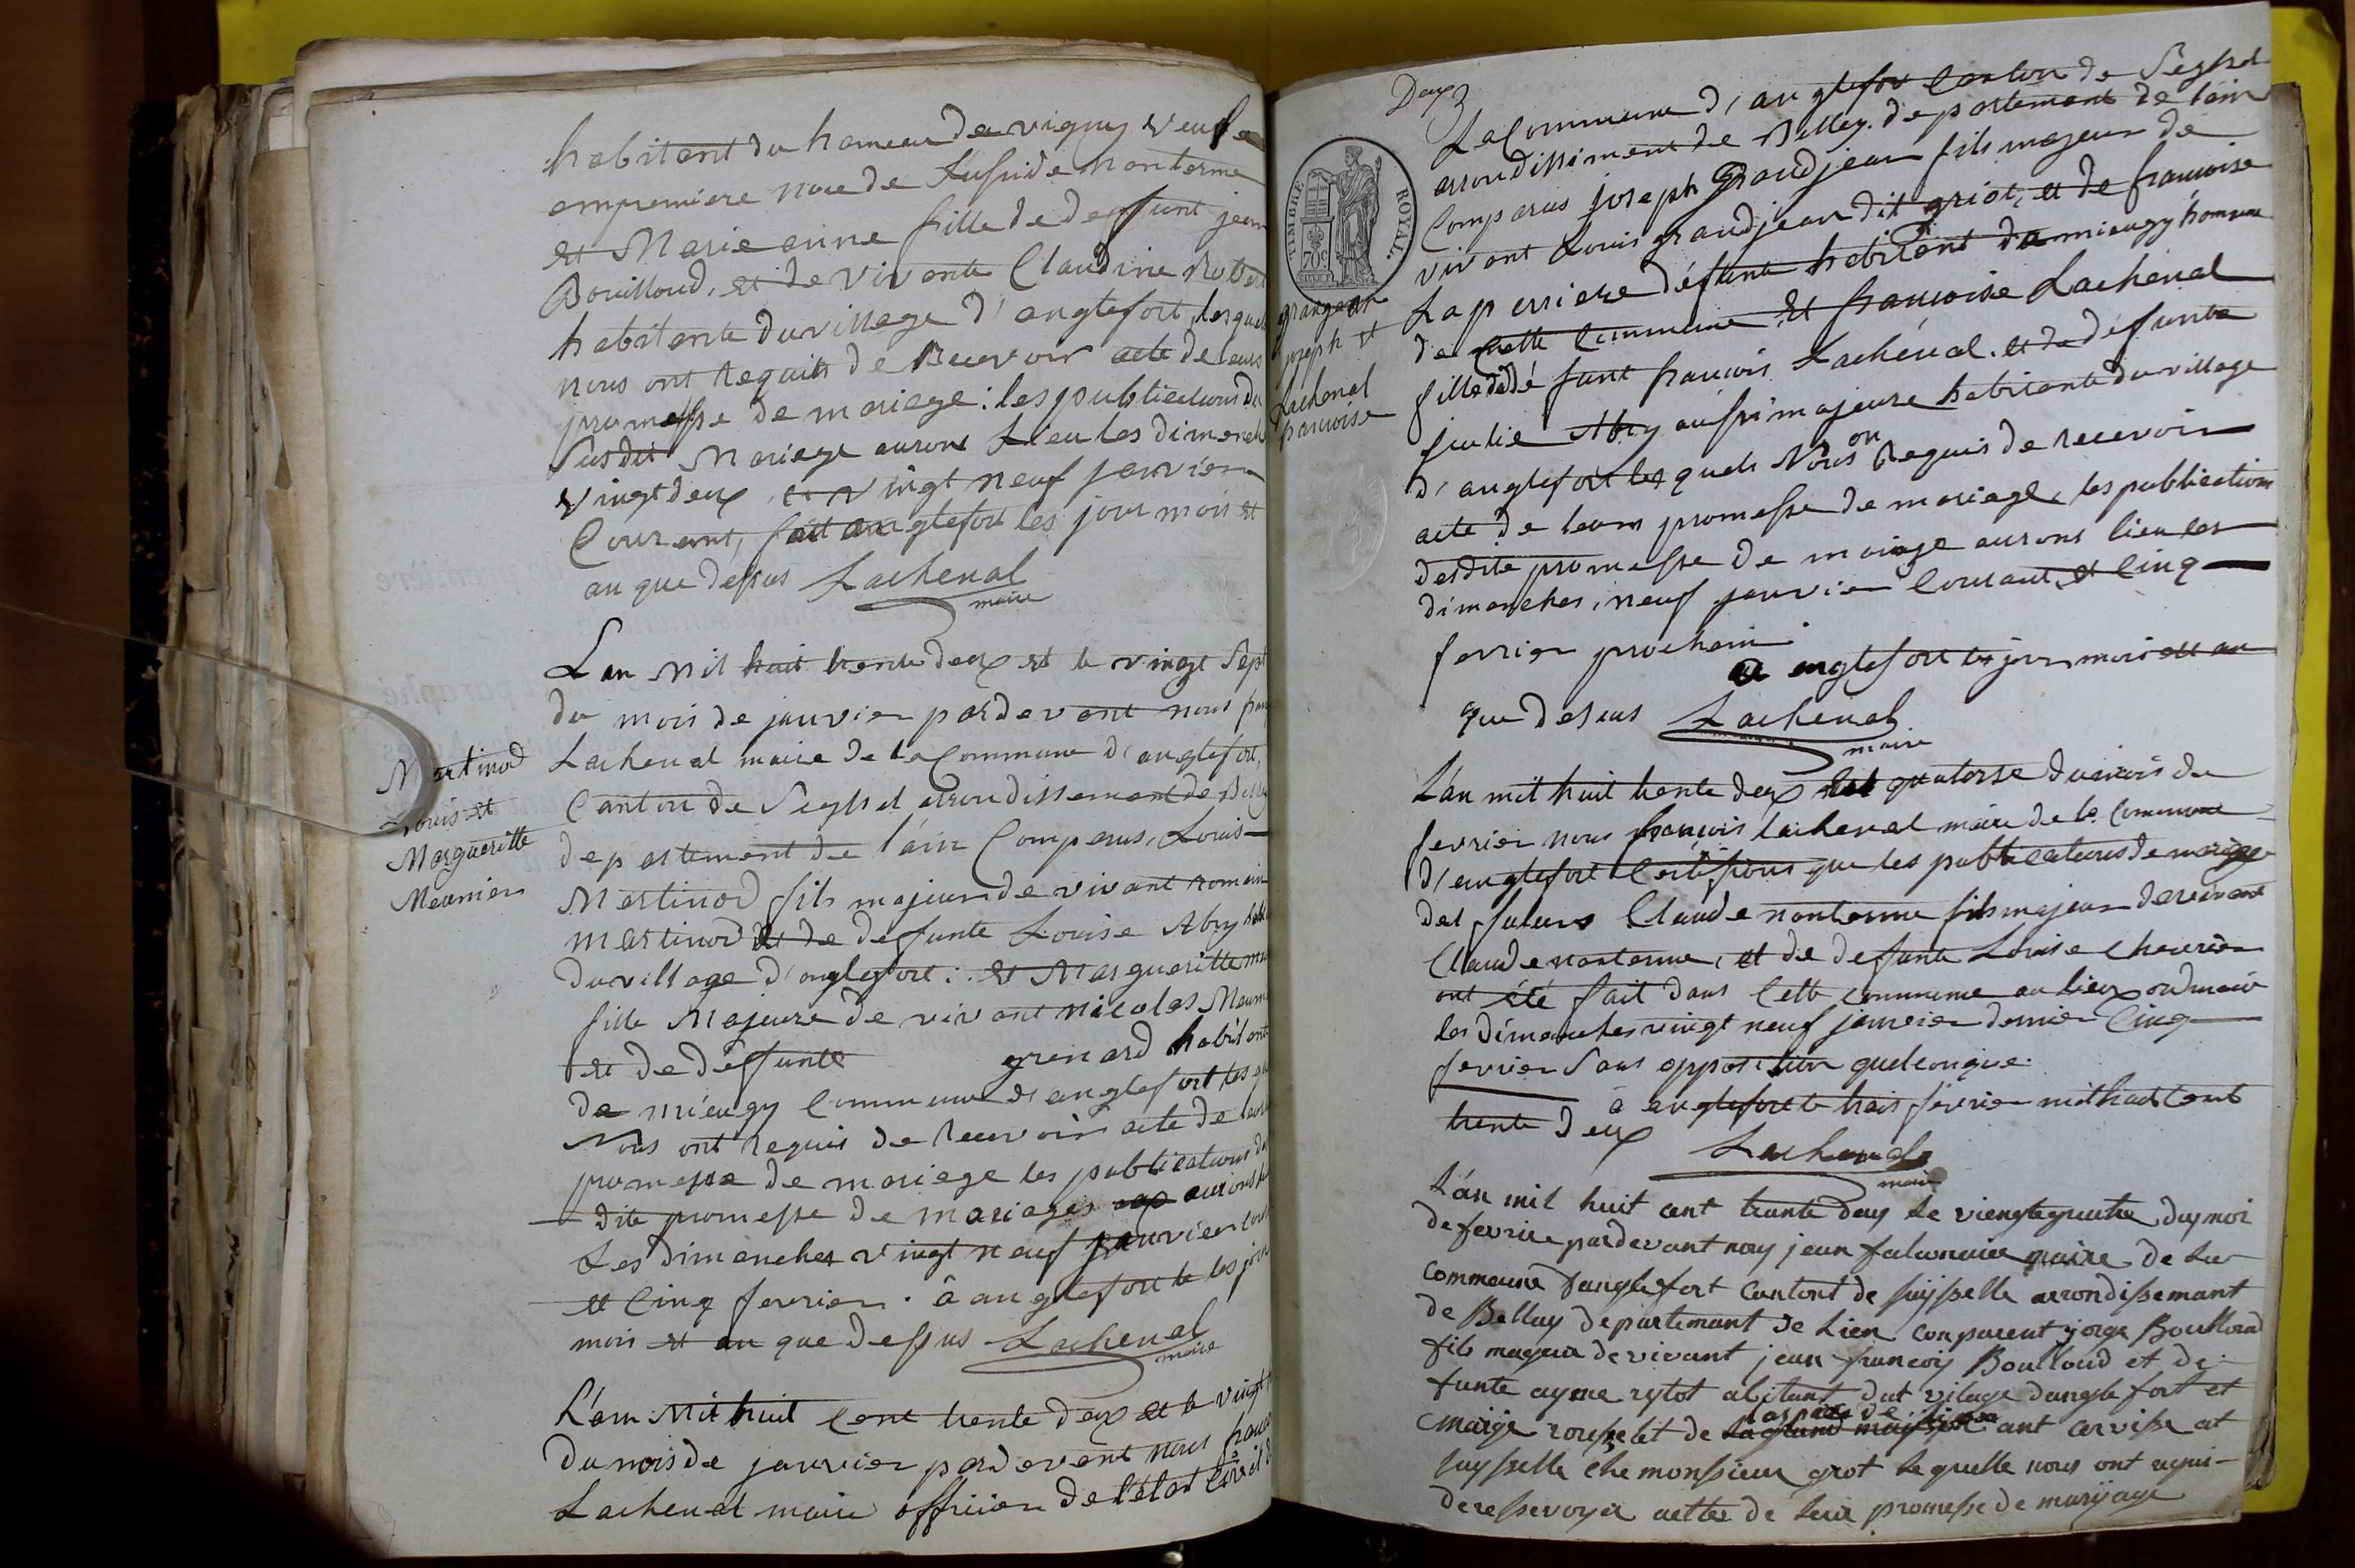 habitant du hameau de vigny veufe
empremiere noce de
et Marie anne fille de deffunt jean
Bouilloud, et de vivante Claudine
habitante du village d'anglefort, lesquels
nous ont Requis de Recevoir acte de leurs
promesse de mariage: les publications du
Susdit Mariage aurons Lieu les dimench
vingt deux et vingt neuf janvier
Courant, fait anglefort les jour mois et
an que dessus Lachenal
maire
Martinod
Louis et
Margueritte
Meunier
L'an mil huit trente deux et le vingt Sept
du mois de janvier pardevant nous fran
Lachenal maire de la Commune d'anglefort,
Canton de Seyssel arrondissement de Belley
departement de l'ain Comparus, Louis
Martinod fils majeur de vivant romain
martinod et de deffunte Louise Abry
du village d'anglefort: et Margueritte
fille Majeure de vivant nicolas Meunier
et de défunte grinard habitante
de miéugy Commune d'anglefort les
Nous ont requis de recevoir acte de
promesse de mariage les publications
dite promesse de mariages aurons
Les dimanches vingt neuf janvier
et Cinq fevrier. à anglefort le les jour
mois et an que dessus Lachenal
maire
L'an Mil huit Cent trente deux et le vingt
du mois de janvier pardevant nous franco
Lachenal maire officier de l'état Civil
Deux
TIMBRE ROYAL
70 c
La Commune d'anglefort Canton de Seyssel
arrondissiment de Belley. departement de l'ain
Comparus joseph Grandjean fils majeur de
vivant Louis grandjean dit griot, et de francoise
Laperriere défunte habitant de mieugy hameau
de Cette Commune et francoise Lachenal
fille de défunt francois Lachénal. et de défunte
julie Abry aussi majeure habitante du village
d'anglefort les quels Nous on Requis de recevoir
acte de leurs promesse de mariage, les publications
desdite promesse de mariage aurons lieu les
dimanches, neuf janvier Courant, et Cinq
fevrier prochain
a anglefort les jour mois et an
que desus Lachenal
maire
grangean
joseph et
Lachenal
francoise
L'an mil huit trente deux quatorse du mois de
fevrier nous françois lachenal maire de la Commune
d'anglefort Certifions que les publications de mariage
des futurs Claude nanterme fils majeur de vivant
Claude nanterme, et de defunte Louise Chevrier
ont été fait dans Cette commune au lieux ordinaire
les dimanches vingt neuf janvier dernier Cinq
fevrier Sans opposition quelconque.
à anglefort le trois fevrier mil huit Cent
trente deux
Lachenal
maire
L'an mil huit cent trante deux le viengtequatre duj moi
de fevrie pardevant nouj jean falconnier maire de La
commeune danglefort Cantont de suysselle arrondissemant
de Belley departemant de Lien conparent jorge Boulloud
fils mageur de vivant jean francoij Boulloud et de
funte ayme rytot abitant dut vilage danglefort et
maije rousselet de la grand maison ant cervisse at
suysselle che monssieur grot lequelle nous ont requi
deressevoyer actte de leur promesse de maryage